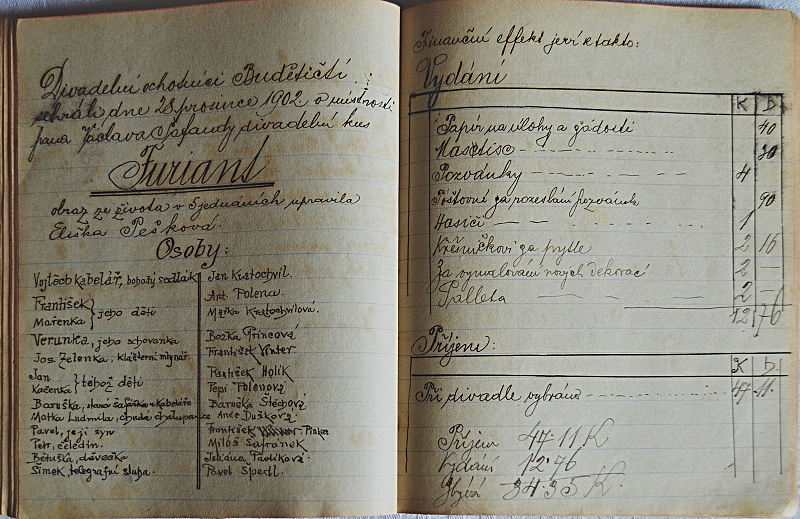 Divadelní ochotníci Budětičtí
sehráli dne 28. prosince 1902 v místnosti
pana Václava Šafandy divadelní kus
Furiant
obraz ze života v 5 jednáních upravila
Eliška Pešková.
Osoby:
Vojtěch Kabelář, bohatý sedlák Jan Kratochvil.
František Ant. Polena.
} jeho děti
Mařenka Mařka Kratochvilova.
Verunka, jeho schovanka Božka Princová
Jos. Zelenka, klášterní mlynář František Vinter.
Jan František Holík
} téhož děti
Kačenka Pepi Polenova
Baruška, stará šafářka u Kabeláře Baruška Šlechová
Matka Ludmila, chudá chalupnice Anče Dušková
Pavel, její syn František Piska
Petr, čeledín. Miloš Šafránek
Bětuška, děvečka Juliana Pavlíková.
Šimek, telegrafní sluha. Pavel Špedl.
Finanční effekt jeví se takto:
Vydání
K D
Papír na úlohy a žádosti 40
30
Pozvánky 4
Poštovné za rozeslání pozvánek 90
Hasiči 1
2 16
Za vymalování nových dekorací 2 —
2 —
12 76
Příjem:
K D.
Při divadle vybráno 47 11.
Příjem 47·11 K
Vydání 12·76
Zbývá 34·35 K.